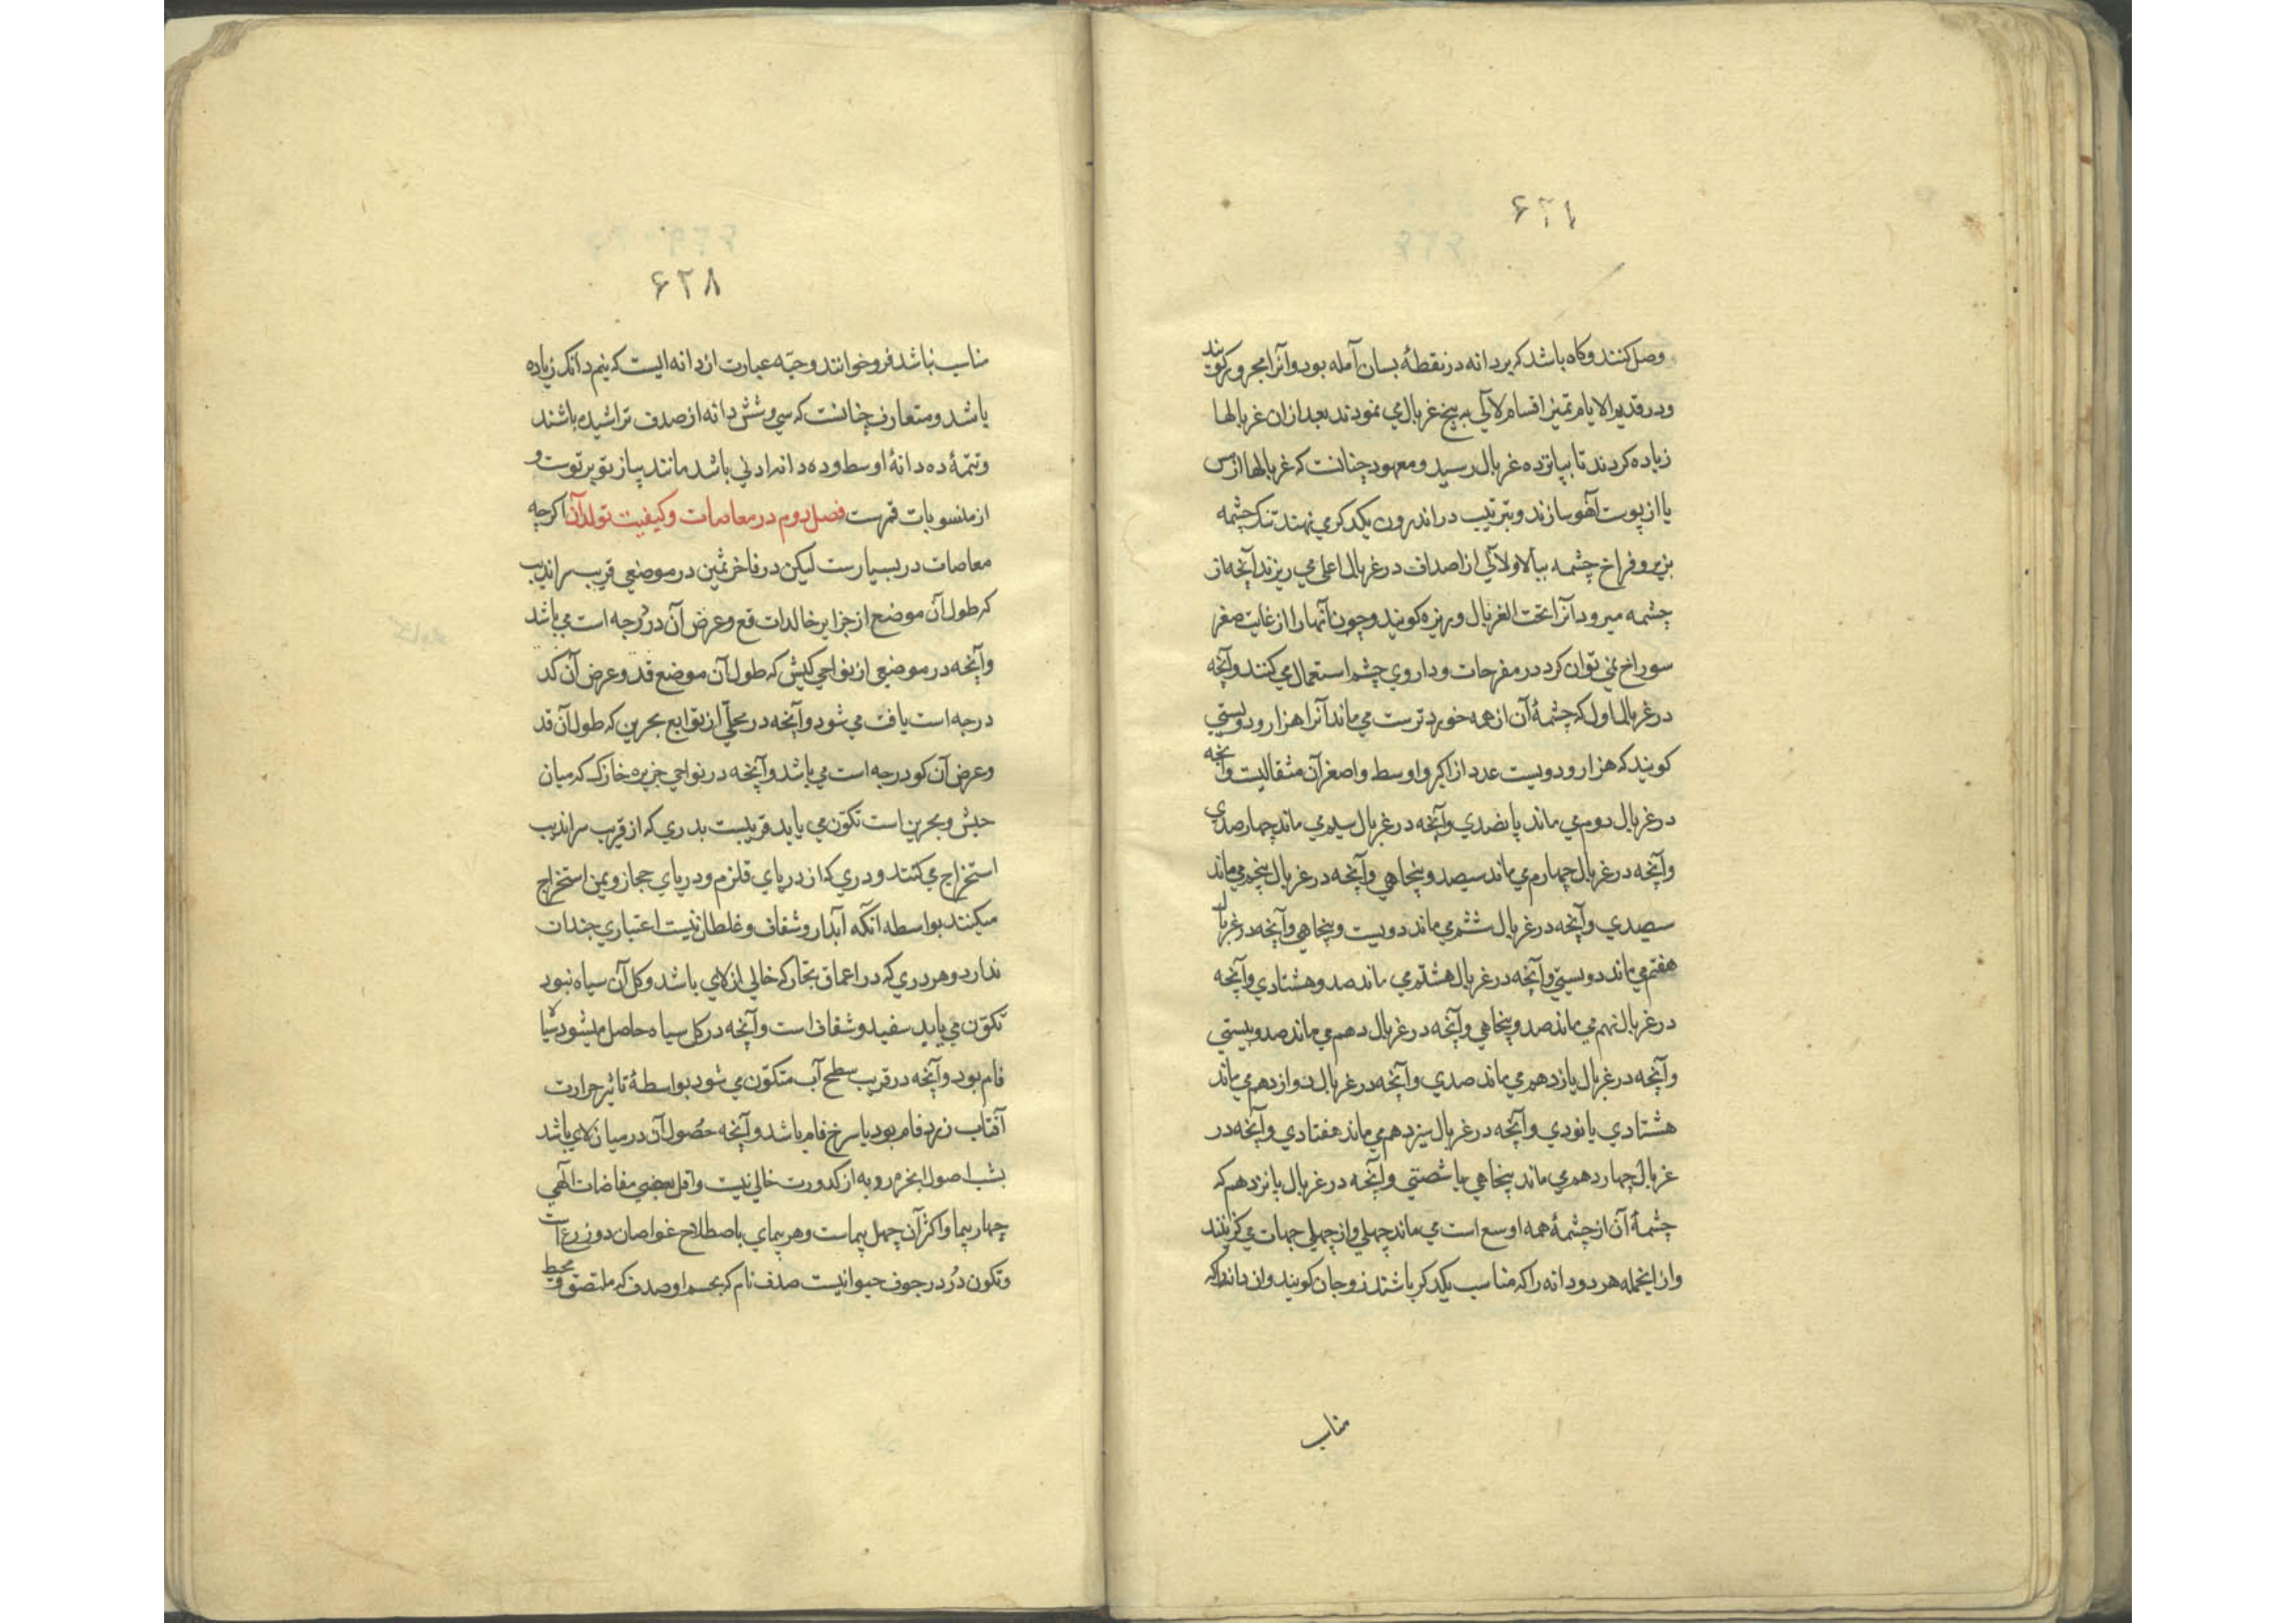 ۶۲۸
وصل کنند و کاه باشد که بر دانه در نقطهٔ بسان آمله بود و آنرا مجرور کویند
و در قدیم الایام تمیز اقسام لآلی به پنج غربال می نمودند بعد ازان غربالها
زیاده کردند تا بپانزده غربال رسید و معهود چنانست که غربالها از مس
یا از پوست آهو سازند و بترتیب در اندرون یکدکر می نهند تنک چشمه
بزیر و فراخ چشمه ببالا و لآلی از اصداف در غربال اعلی می ریزند آنچه از
چشمه میرود آنرا تحت الغربال و ریزه کویند و چون آنها را از غایت صغر
سوراخ نمی توان کرد در مفرحات و داروی چشم استعمال می کنند و آنچه
در غربال اول که چشمهٔ آن از همه خوردترست می ماند آنرا هزار و دویستی
کویند که هزار و دویست عدد از اکبر و اوسط و اصغر آن مثقالیست و آنچه
در غربال دوم می ماند پانصدی و آنچه در غربال سیم می ماند چهار صدی
و آنچه در غربال چهارم می ماند سیصد و پنجاهی و آنچه در غربال پنجم می ماند
سیصدی و آنچه در غربال ششم می ماند دویست و پنجاهی و آنچه در غربال
هفتم می ماند دویستی و آنچه در غربال هشتم می ماند صد و هشتادی و آنچه
در غربال نهم می ماند صد و پنجاهی و آنچه در غربال دهم می ماند صد و بیستی
و آنچه در غربال یازدهم می ماند صدی و آنچه در غربال دوازدهم می ماند
هشتادی یا نودی و آنچه در غربال سیزدهم می ماند هفتادی و آنچه در
غربال چهاردهم می ماند پنجاهی یا شصتی و آنچه در غربال پانزدهم که
چشمهٔ آن از چشمهٔ همه اوسع است می ماند چهلی و از چهلی جهات می کزینند
و از اینجمله هر دو دانه را که مناسب یکدکر باشند زوجان کویند و ان دانه را که
مناسب
مناسب نباشد فرو خوانند و حبّه عبارت از دانه ایست که نیم دانک زیاده
باشد و متعارف چنانست که سی و شش دانه از صدف تراشیده باشند
و تتمهٔ ده دانهٔ اوسط و ده دانه ادنی باشد مانند پیاز تو بر توست و
از منسوبات قمرست فصل دوم در معاصات و کیفیت تولد آن اکرچه
معاصات در بسیارست لیکن در فاخر ثمین در موضعی قریب سراندیب
که طول آن موضع از جزایر خالدات قع و عرض آن درجه است می باشد
و آنچه در موضعی از نواحی کیش که طول آن موضع قد و عرض آن کد
درجه است یافت می شود و آنچه در محلّی از توابع بحرین که طول آن قد
و عرض آن کو درجه است می باشد و آنچه در نواحی جزیره خارک که میان
حبش و بحرین است تکوّن می یابد قریبست بدری که از قریب سراندیب
استخراج می کنند و دری که از دریای قلزم و دریای حجاز و یمن استخراج
میکنند بواسطه آنکه آبدار و شفاف و غلطان نیست اعتباری چندان
ندارد و هر دری که در اعماق بحار که خالی از لای باشد و کل آن سیاه نبود
تکوّن می یابد سفید و شفاف است و آنچه در کل سیاه حاصل میشود سیاه
فام بود و آنچه در قریب سطح آب متکوّن می شود بواسطهٔ تاثیر حرارت
آفتاب زرد فام بود یا سرخ فام باشد و آنچه حصول آن در میان لای باشد
بسبب اصول ابخره رویه از کدورت خالی نیست و اقل بعضی مغاصات الهی
چهار پیما و اکثر آن چهل پیماست و هر پیمای باصطلاح غواصان دو زرع است
و تکون دُر در جوف حیوانیست صدف نام که بجسم او صدف که ملتصق و محیط